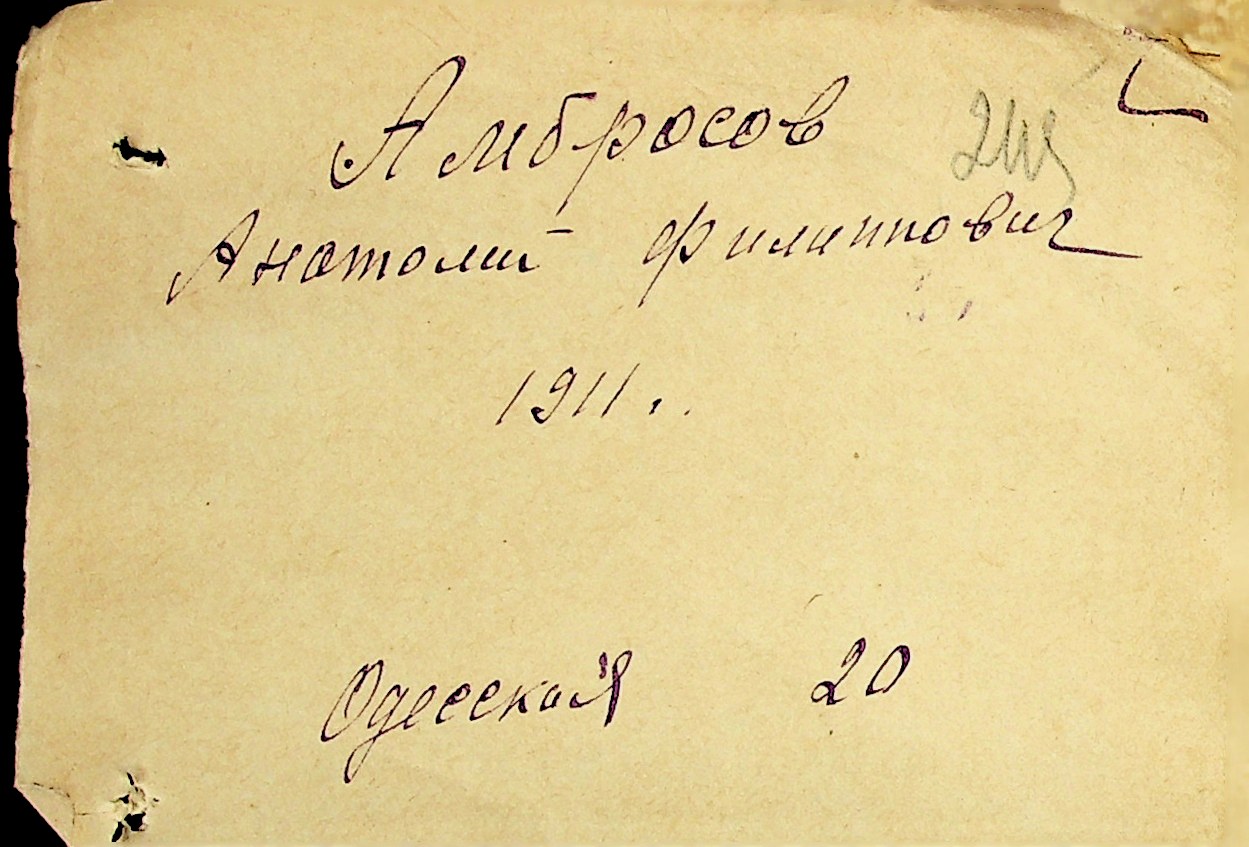 Амбросов
Анатолий Филиппович
1911 г.
Одесская 20